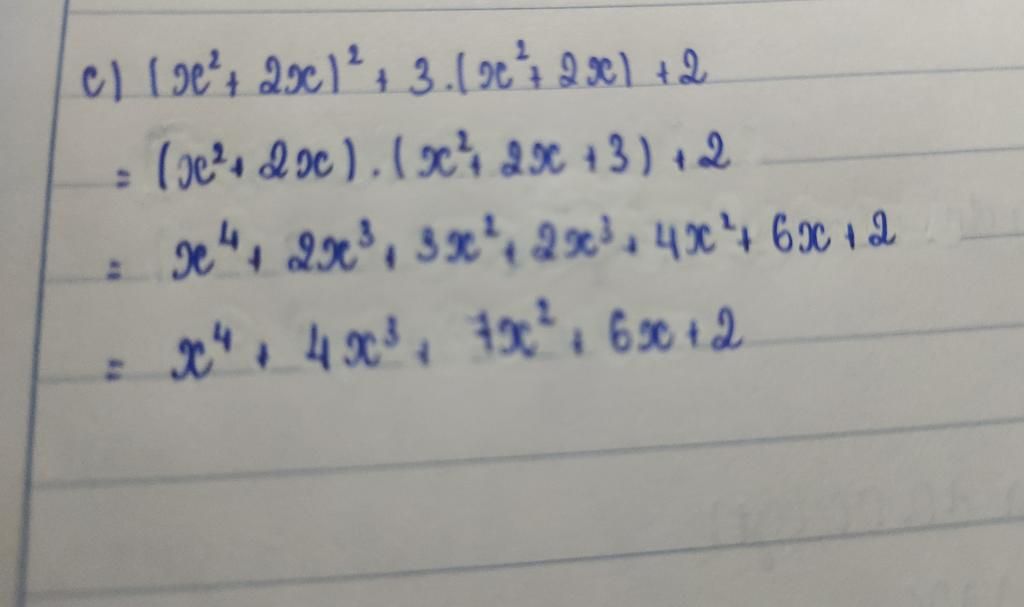 c) (x² + 2x)² + 3.(x² + 2x) + 2
= (x² + 2x).(x² + 2x + 3) + 2
= x⁴ + 2x³ + 3x² + 2x³ + 4x² + 6x + 2
= x⁴ + 4x³ + 7x² + 6x + 2